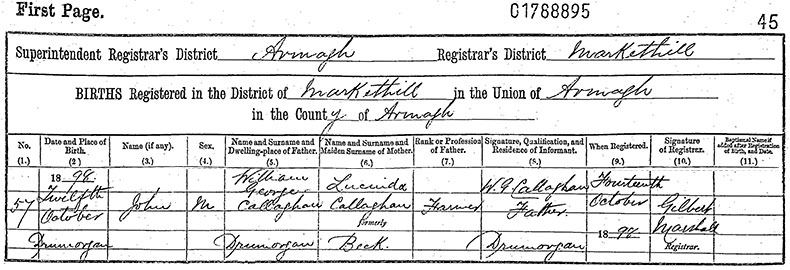 First Page. C1768895 45
Superintendent Registrar's District Armagh Registrar's District Markethill
BIRTHS Registered in the District of Markethill in the Union of Armagh
in the County of Armagh
No. (1.) Date and Place of Birth. (2) Name (if any). (3.) Sex. (4.) Name and Surname and Dwelling-place of Father. (5.) Name and Surname and Maiden Surname of Mother. (6.) Rank or Profession of Father. (7.) Signature, Qualification, and Residence of Informant. (8.) When Registered. (9.) Signature of Registrar. (10.) Baptismal Name if added after Registration of Birth, and Date. (11.)
1898. William
Twelfth George Lucinda W. G. Callaghan Fourteenth
57 October John M Callaghan Callaghan Farmer Father. October Gilbert
formerly 1898 Marshall
Drumorgan Drumorgan Beck. Drumorgan Registrar.